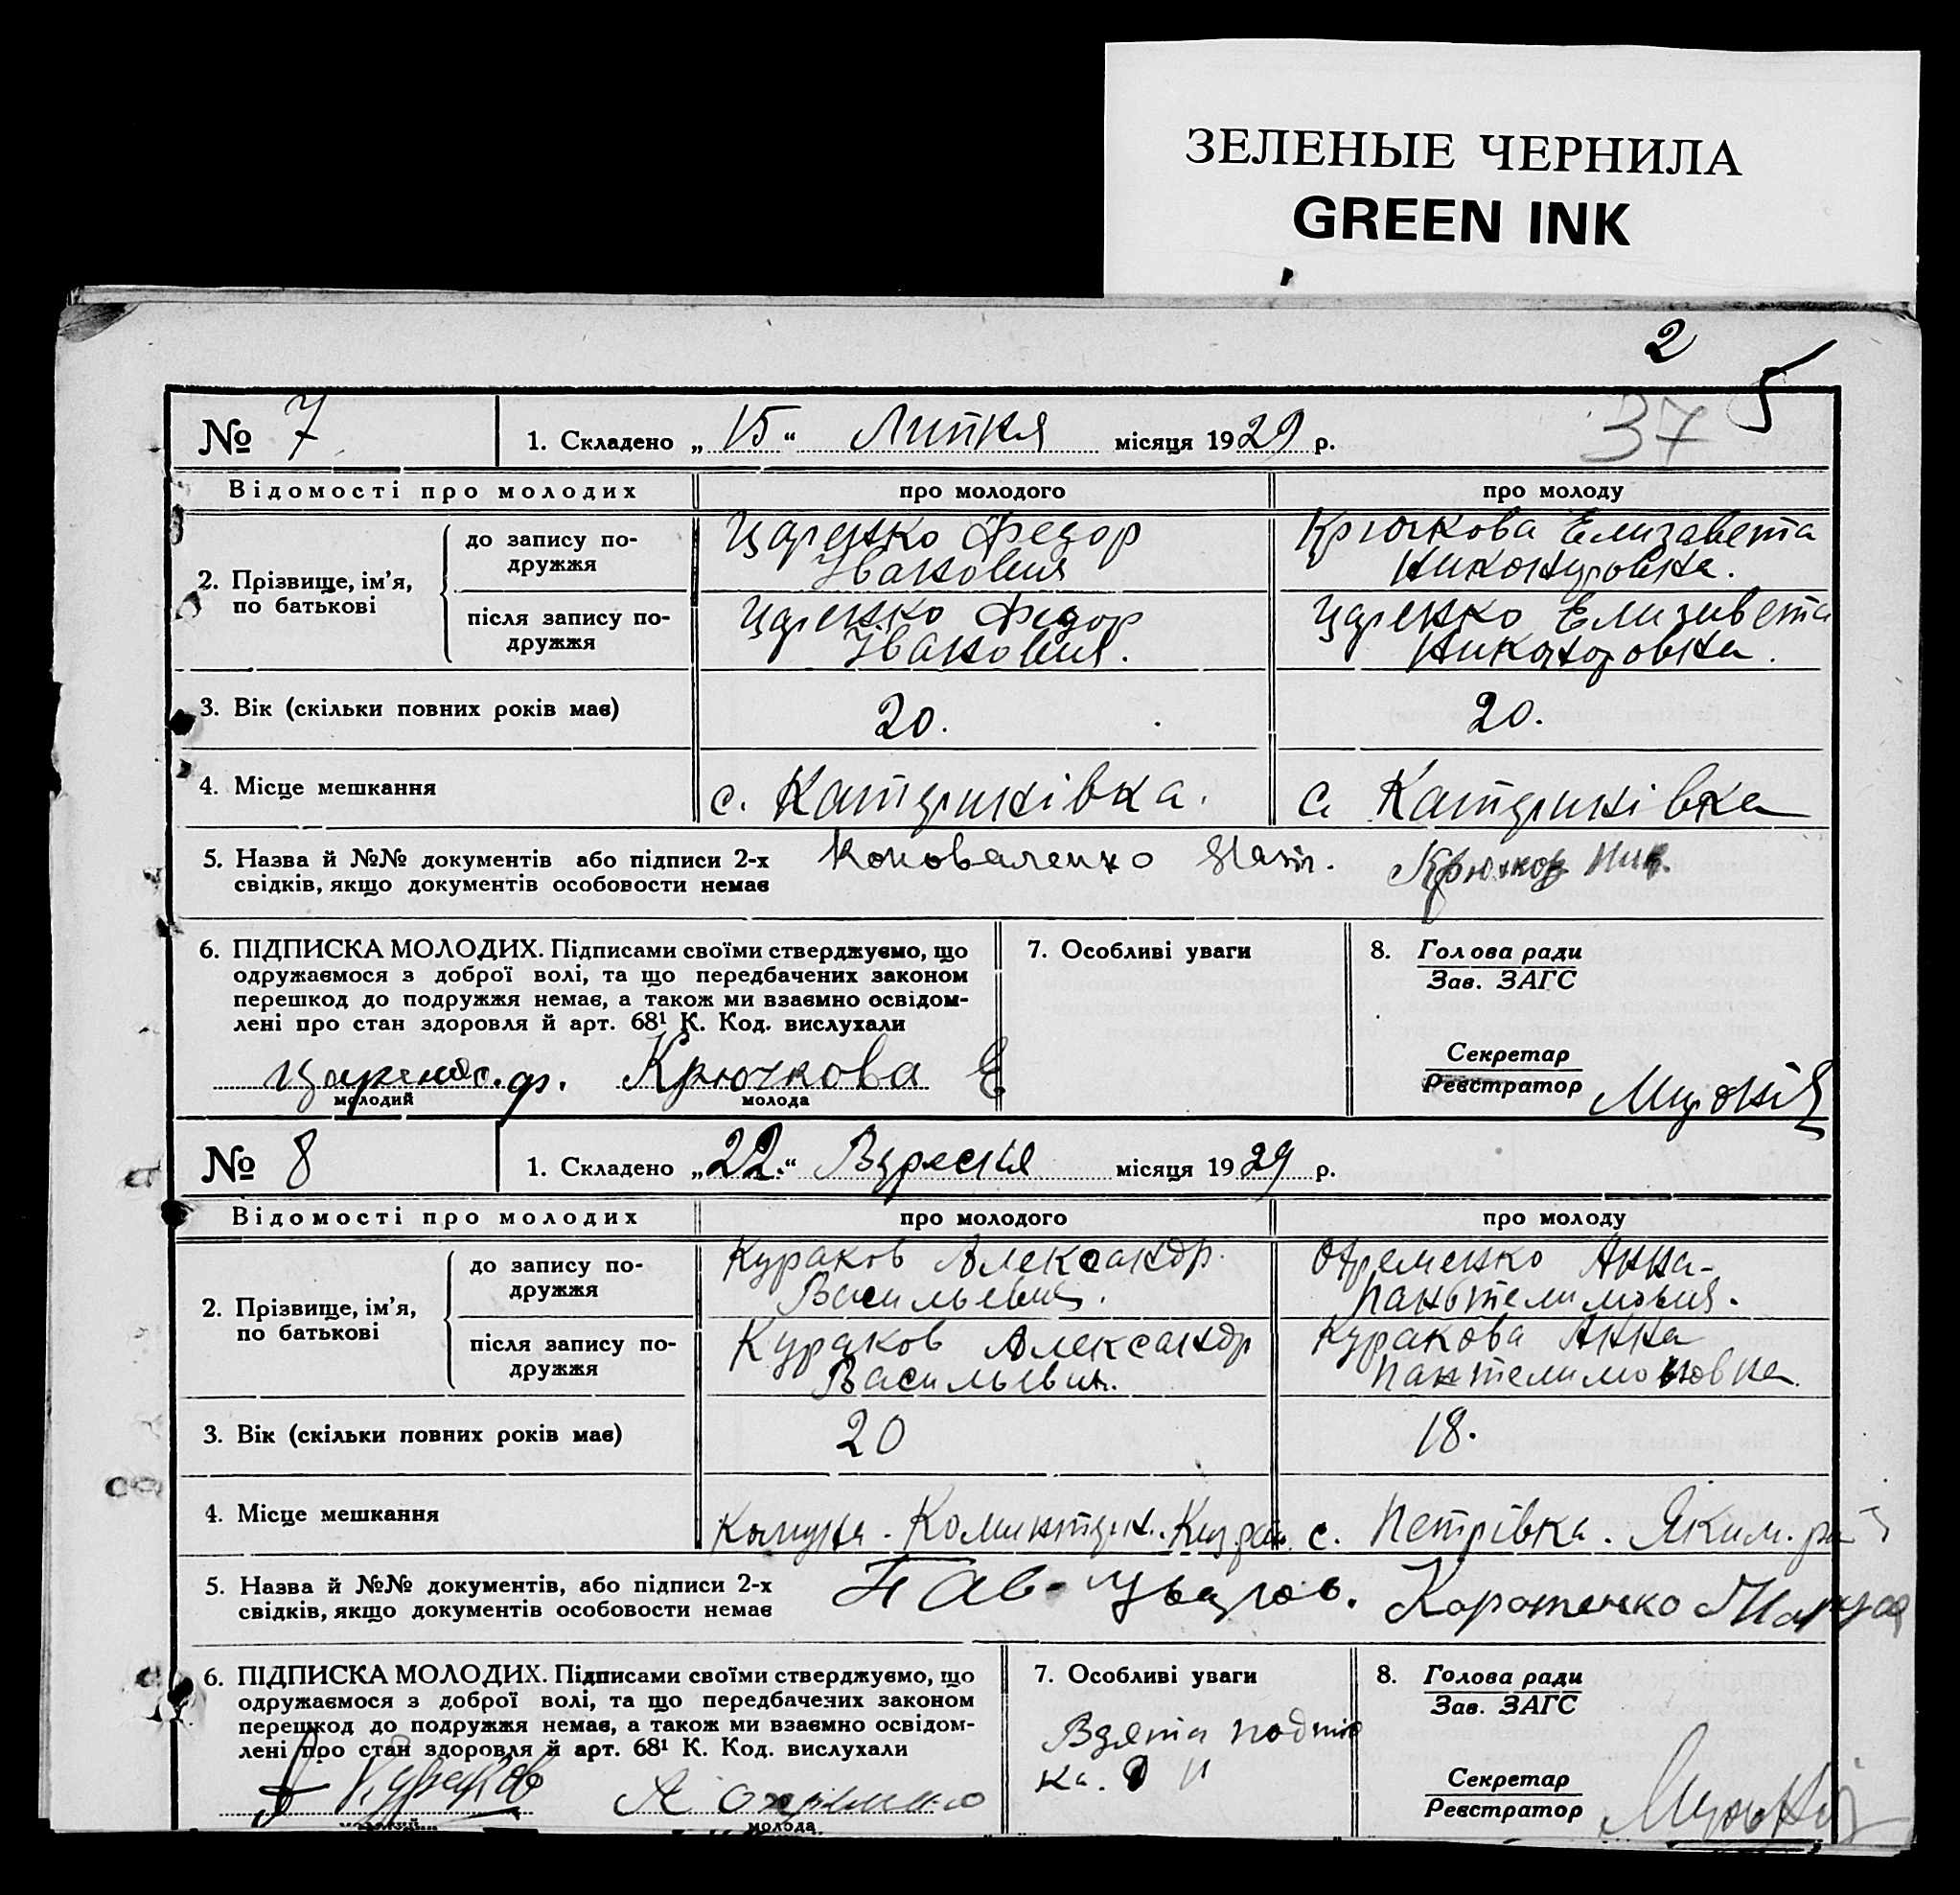 ЗЕЛЕНЫЕ ЧЕРНИЛА
GREEN INK
2
5
37
№ 7
1. Складено „15“ Липня місяця 1929 р.
Відомості про молодих
про молодого
про молоду
2. Прізвище, ім’я, по батькові
до запису подружжя
Царенко Федор
Іванович
Крючкова Елизавета
Никоноровна.
після запису подружжя
Царенко Федор
Іванович.
Царенко Елизавета
Никоноровна.
3. Вік (скільки повних років має)
20.
20.
4. Місце мешкання
с. Катеринівка.
с Катеринівка
5. Назва й №№ документів або підписи 2-х
свідків, якщо документів особовости немає
Коноваленко
Крючков Ник.
6. ПІДПИСКА МОЛОДИХ. Підписами своїми стверджуємо, що
одружаємося з доброї волі, та що передбачених законом
перешкод до подружжя немає, а також ми взаємно освідом-
лені про стан здоровля й арт. 68¹ К. Код. вислухали
Царенко. ф. Крючкова Е
молодий
молода
7. Особливі уваги
8. Голова ради
Зав. ЗАГС
Секретар
Реєстратор
№ 8
1. Складено „22.“ Вересня місяця 1929 р.
Відомості про молодих
про молодого
про молоду
2. Прізвище, ім’я,
по батькові
до запису по-
дружжя
Кураков Александр.
Васильевич.
Охременко Анна
після запису по-
дружжя
Кураков Александр
Васильевич.
Куракова Анна
Пантелимоновна
3. Вік (скільки повних років має)
20
18.
4. Місце мешкання
Комуна. Коминтерн.
с. Петрівка. Яким. р
5. Назва й №№ документів, або підписи 2-х
свідків, якщо документів особовости немає
Коротенко
6. ПІДПИСКА МОЛОДИХ. Підписами своїми стверджуємо, що
одружаємося з доброї волі, та що передбачених законом
перешкод до подружжя немає, а також ми взаємно освідом-
лені про стан здоровля й арт. 68¹ К. Код. вислухали
Кураков
А Охрименко
молодий
молода
7. Особливі уваги
Взята подпис
ка.
8. Голова ради
Зав. ЗАГС
Секретар
Реєстратор